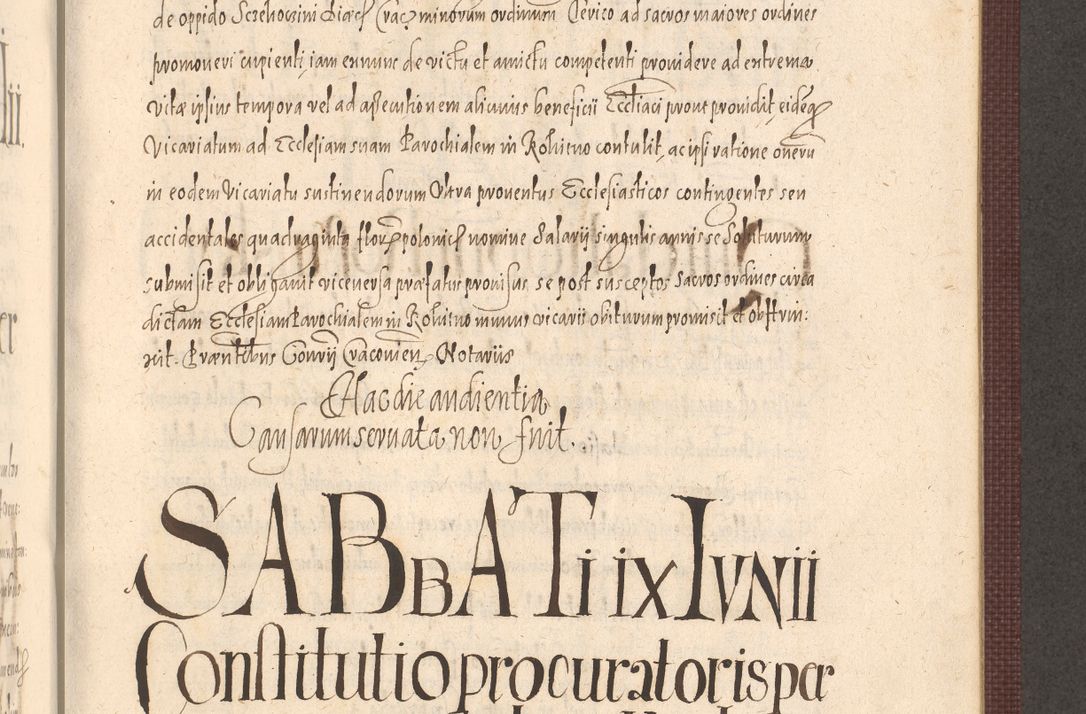 de oppido Sczehoczini Diaec Crac minorum ordinum Clerico ad sacros maiores ordines
promoveri cupienti, iam ennunc de victu et amictu competenti providere ad extrema
vitæ ipsius tempora vel ad assecutionem alicuius beneficii Eccliaci prout providit, eidẽq
Vicariatum ad Ecclesiam suam Parochialem in Rokitno contulit, ac ipsi ratione onerũ
in eodem Vicariatu sustinendorum Ultra proventus Ecclesiasticos contingentes seu
accidentales quadraginta flor polonic nomine Salarij singulis annis se Soluturum
submisit et obligavit viceversa præfatus provisus se post susceptos Sacros ordines circa
dictam Ecclesiam Parochialem in Rokitno munus vicarii obiturum promisit et obstrin:
xit. Præntibus Convij Cracovien Notariis
Hac die audientia
Causarum servata non fuit.
SABBATI IX IVNII
Constitutio procuratoris per